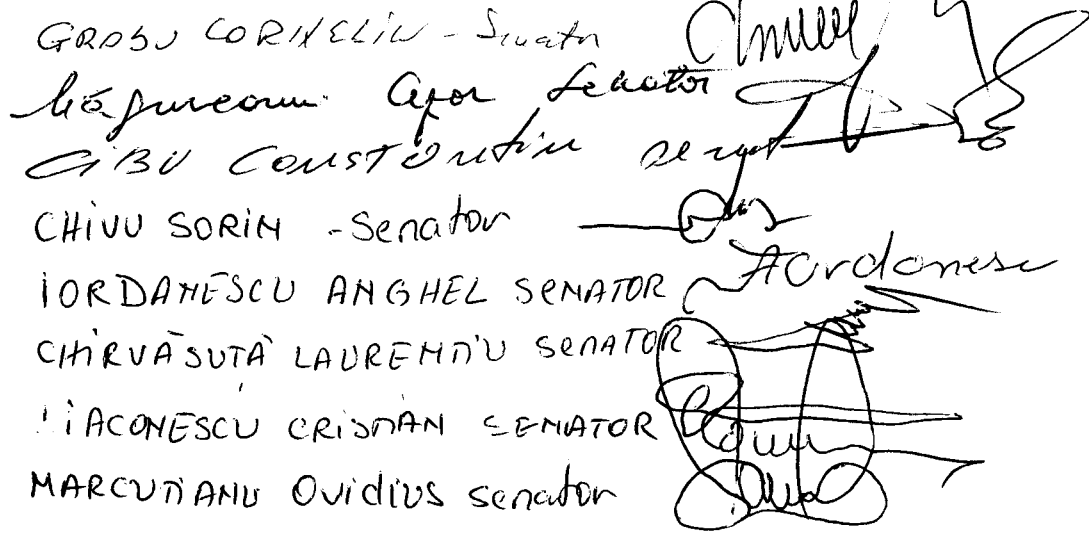 GROSU CORNELIU - Senator
Măgureanu Cezar Senator
CIBU Constantin senat
CHIVU SORIN - Senator
IORDANESCU ANGHEL SENATOR Iordanescu
CHIRVĂSUTĂ LAURENTIU SENATOR
DIACONESCU CRISTIAN SENATOR
MARCUTIANU OVIDIUS senator